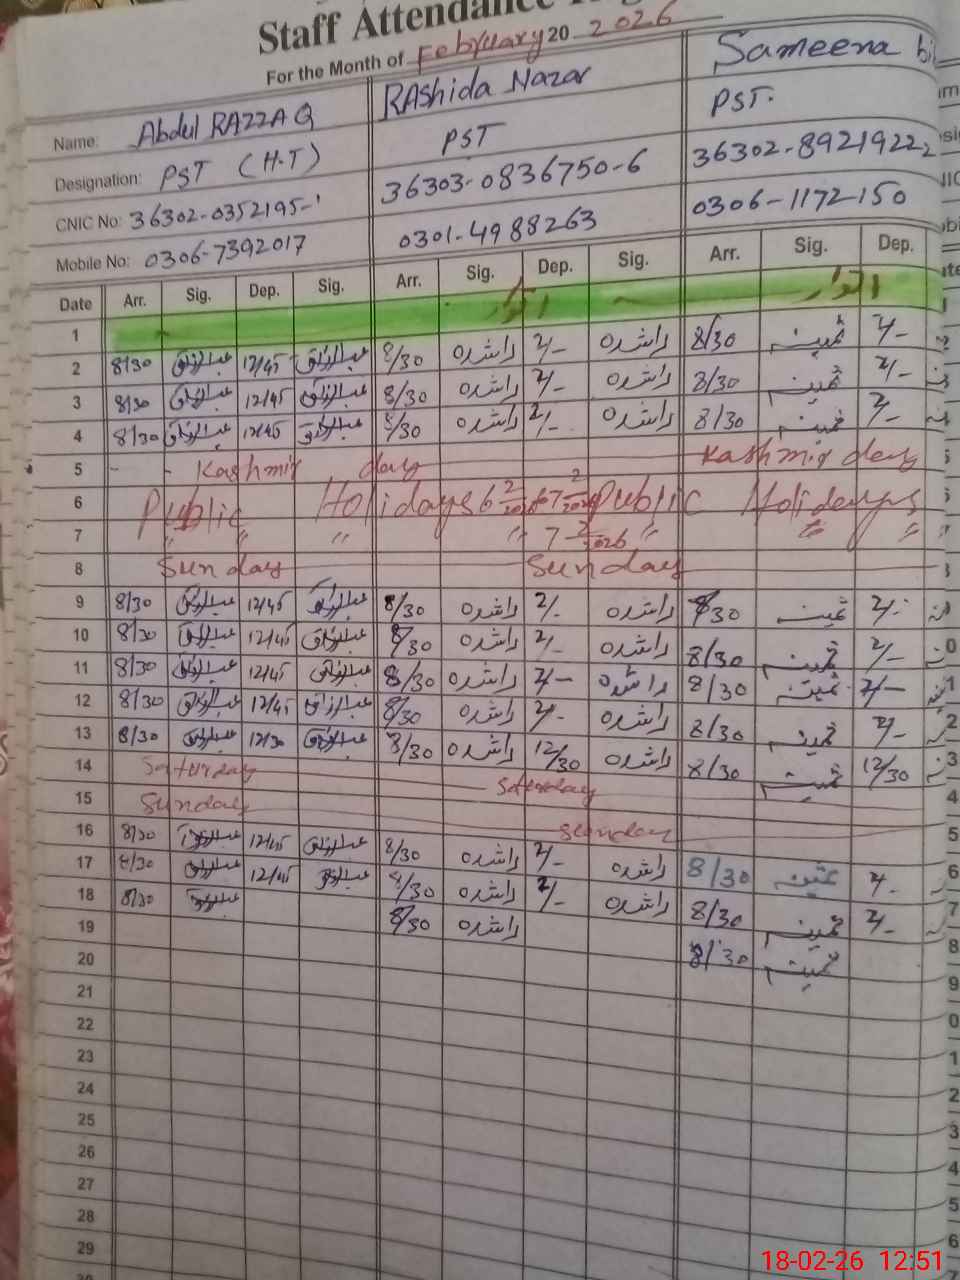 Staff Attendance
For the Month of February 20 2026
Name: Abdul RAZZAQ RAshida Nazar Sameena bi
Designation: PST (H.T) PST PST.
CNIC No: 36302-0352195-1 36303-0836750-6 36302-8921922
Mobile No: 0306-7392017 0301-4988263 0306-1172150
Date Arr. Sig. Dep. Sig. Arr. Sig. Dep. Sig. Arr. Sig. Dep.
1 اتوار اتوار
2 8/30 عبدالرزاق 12/45 عبدالرزاق 8/30 راشدہ 2/- راشدہ 8/30 ثمینہ 2/-
3 8/30 عبدالرزاق 12/45 عبدالرزاق 8/30 راشدہ 2/- راشدہ 8/30 ثمینہ 2/-
4 8/30 عبدالرزاق 12/45 عبدالرزاق 8/30 راشدہ 2/- راشدہ 8/30 ثمینہ 2/-
5 - - Kashmir day Kashmir day
6 Public Holidays 6 2/2026 7 2/2026 Public Holidays
7 " " " " 7 2/2026 " " "
8 Sunday Sunday
9 8/30 عبدالرزاق 12/45 عبدالرزاق 8/30 راشدہ 2/- راشدہ 8/30 ثمینہ 2/-
10 8/30 عبدالرزاق 12/45 عبدالرزاق 8/30 راشدہ 2/- راشدہ 8/30 ثمینہ 2/-
11 8/30 عبدالرزاق 12/45 عبدالرزاق 8/30 راشدہ 2/- راشدہ 8/30 ثمینہ 2/-
12 8/30 عبدالرزاق 12/45 عبدالرزاق 8/30 راشدہ 2/- راشدہ 8/30 ثمینہ 2/-
13 8/30 عبدالرزاق 12/30 عبدالرزاق 8/30 راشدہ 12/30 راشدہ 8/30 ثمینہ 12/30
14 Saturday Saturday
15 Sunday Sunday
16 8/30 عبدالرزاق 12/45 عبدالرزاق 8/30 راشدہ 2/- راشدہ 8/30 ثمینہ 2/-
17 8/30 عبدالرزاق 12/45 عبدالرزاق 8/30 راشدہ 2/- راشدہ 8/30 ثمینہ 2/-
18 8/30 عبدالرزاق 8/30 راشدہ 8/30 ثمینہ
19
20
21
22
23
24
25
26
27
28
29
18-02-26 12:51